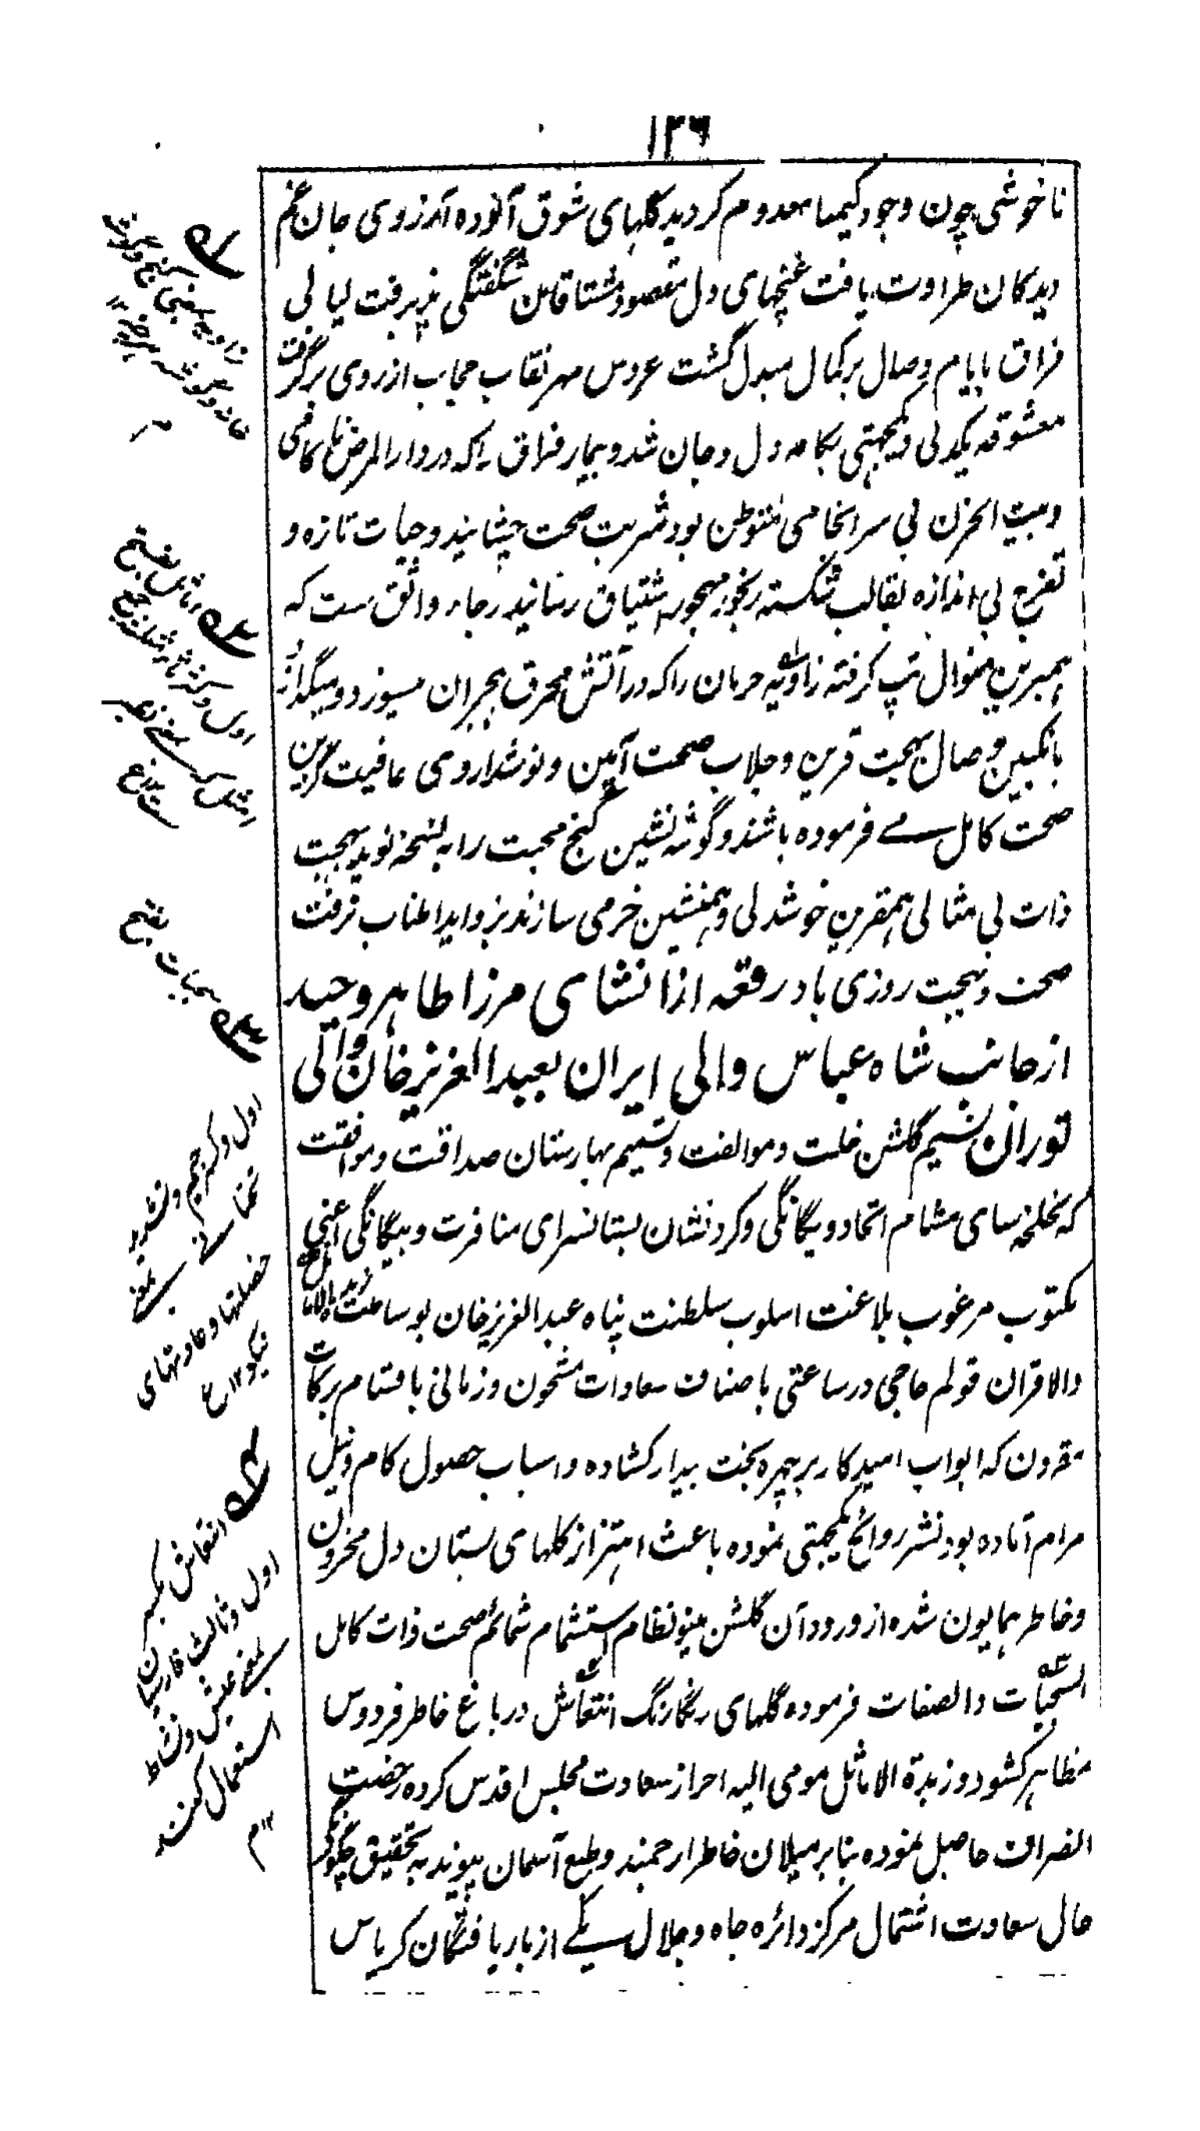 ۱۳۶
ناخوشی چون وجود کیمیا معدوم گردید گلهای شوق آلوده آرزوی جان غم
دیدگان طراوت یافت غنچهای دل مقصود مشتاقان شگفتگی پذیرفت لیالی
فراق بایام وصال برکمال مبدل گشت عروس مهر نقاب حجاب از روی برگرفت
معشوقه یکدلی و یکجهتی بکام دل و جان شد و بیمار فراق را که در دارالمرض ناکامی
و بیت الحزن بی سرانجامی متوطن بود شربت صحت چشانید و حیات تازه و
تفریح بی اندازه بقالب شکسته رنجور مهجور اشتیاق رسانید رجاء واثق ست که
همبرین منوال تپ گرفته زاویه حرمان را که در آتش محرق هجران میسوزد و میگدازد
بانگبین وصال بهجت قرین و جلاب صحت آیین و نوشداروی عافیت گزین
صحت کامل می فرموده باشند و گوشه نشین کنج محبت را به نسخه نوید بهجت
ذات بی مثالی همقرین خوشدلی و همنشین خرمی سازند بزواید اطناب نرفت
صحت و بهجت روزی باد رقعه از انشای مرزا طاهر وحید
از جانب شاه عباس والی ایران بعبدالعزیز خان والی
توران نسیم گلشن خلت و موالفت و شمیم بهارستان صداقت و موافقت
که لخلخه سای مشام اتحاد و یگانگی و گرد نشان بستانسرای منافرت و بیگانگی اعنی
مکتوب مرغوب بلاغت اسلوب سلطنت پناه عبدالعزیز خان بوساطت زبدة الاماثل
والاقران قولم حاجی در ساعتی باصناف سعادات مشحون و زمانی باقسام برکات
مقرون که ابواب امید کار بر چهره بخت بیدار کشاده و اسباب حصول کام و نیل
مرام آماده بود نشر روائح یکجهتی نموده باعث اهتزاز گلهای بستان دل مخزون
و خاطر همایون شده از ورود آن گلشن مینو نظام استشمام شمائم صحت ذات کامل
السجیات والصفات فرموده گلهای رنگارنگ انتعاش در باغ خاطر فردوس
مظاهر کشود و زبدة الاماثل مومی الیه احراز سعادت مجلس اقدس کرده رخصت
انصراف حاصل نموده بنابر میلان خاطر ارجمند و طبع آسمان پیوند به تحقیق چگونگی
حال سعادت اشتمال مرکز دائره جاه و جلال یکی از باریافتگان کریاس
۱
زاویه بمعنی کنج و گوشه
خانه و گوشه هر چیز ۱۲
۲
۳ سجیات بفتح
اول و کسر جیم و تشدید
تحتانی بمعنی
خصلتها و عادتهای
نیکو ۱۲ ع
۴ انتعاش بکسر
اول و ثالث فارسیان
بمعنی عیش و نشاط
استعمال کنند
۱۲ م